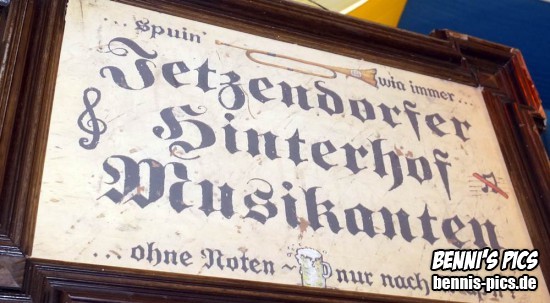 ... spuin' wia immer ...
Jetzendorfer
Hinterhof
Musikanten
... ohne Noten ~ nur nach
BENNI'S PICS
bennis-pics.de